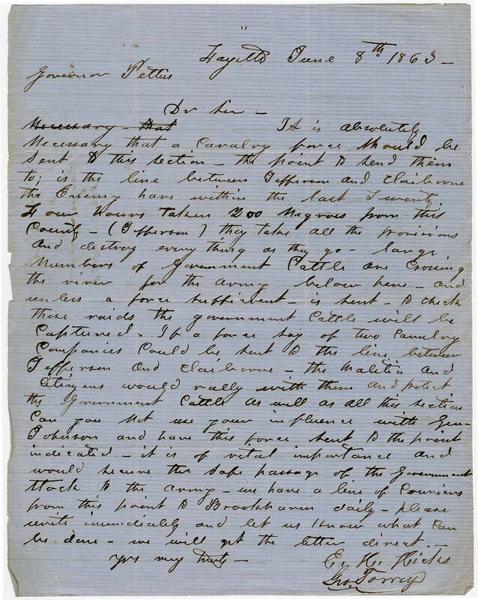 Fayette June 8th 1863 —
Governor Pettus
Dr Sir —
Necessary — that It is absolutely
Necessary that a Cavalry force should be
sent to this section — the point to send them
to; is the line between Jefferson and Claiborne
the Enemy have within the last Twenty
Four hours taken 200 Negroes from this
County — (Jefferson) they take all the provisions
and destroy everything as they go — large
Numbers of Government Cattle are Crossing
the river for the army below here — and
unless a force sufficient — is sent — to check
these raids the government Cattle will be
Captured. If a force say of two Cavalry
Companies Could be sent to the line between
Jefferson and Claiborne — the Malitia and
Citizens would rally with them and protect
the Government Cattle as well as all this section
Can you Not use your influence with Gen
Johnson and have this force sent to the point
indicated — it is of vital importance and
would secure the safe passage of the Government
Stock to the army — we have a line of Couriers
from this point to Brookhaven daily — please
write immediately and let us know what Can
be done — we will get the letter direct —
yrs very truly —
E. H. Hicks
Geo Torrey